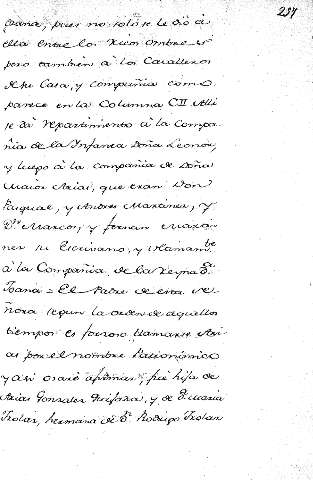 237
pues no solo se le dió á
ella entre los Ricos ombres
pero tambien á los Cavalleros
de su Casa, y compañia como
parece en la Columna CII Alli
se dá repartimiento á la Compa-
ñia de la Infanta Doña Leonor,
y luego á la compañia de Doña
Maior Arias, que eran Don
Pasqual, y Andres Martinez, y
Dn Marcos, y fernan Martí-
nez su Escrivano, y
á la Compañia, de la Reyna Da
Joana = El Padre de esta se-
ñora segun la orden de aquellos
tiempos es forzoso, llamarse Ari-
as por el nombre Patronimico
y asi osaré afirmar, fué hija de
Arias Gonzalez Quixada, y de Da Maria
Froláz, hermana de Dn Rodrigo Froláz